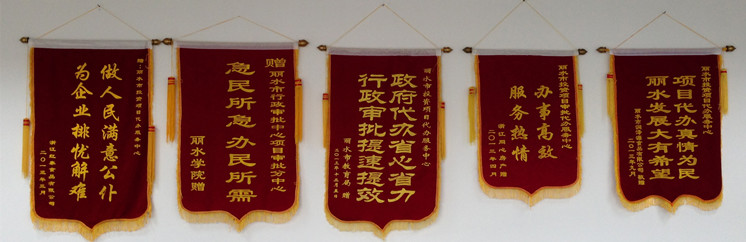 赠:丽水市投资项目代办服务中心
做人民满意公仆
为企业排忧解难
食品有限公司
二〇一三年三月
赠
丽水市行政审批中心项目审批分中心
急民所急 办民所需
丽水学院赠
丽水市投资项目代办服务中心
政府代办省心省力
行政审批提速提效
丽水市教育局 赠
丽水市投资项目审批代办服务中心
办事高效
服务热情
浙江同心房产赠
二〇一三年四月
丽水市投资项目代办服务中心
项目代办真情为民
丽水发展大有希望
食品有限公司 敬赠